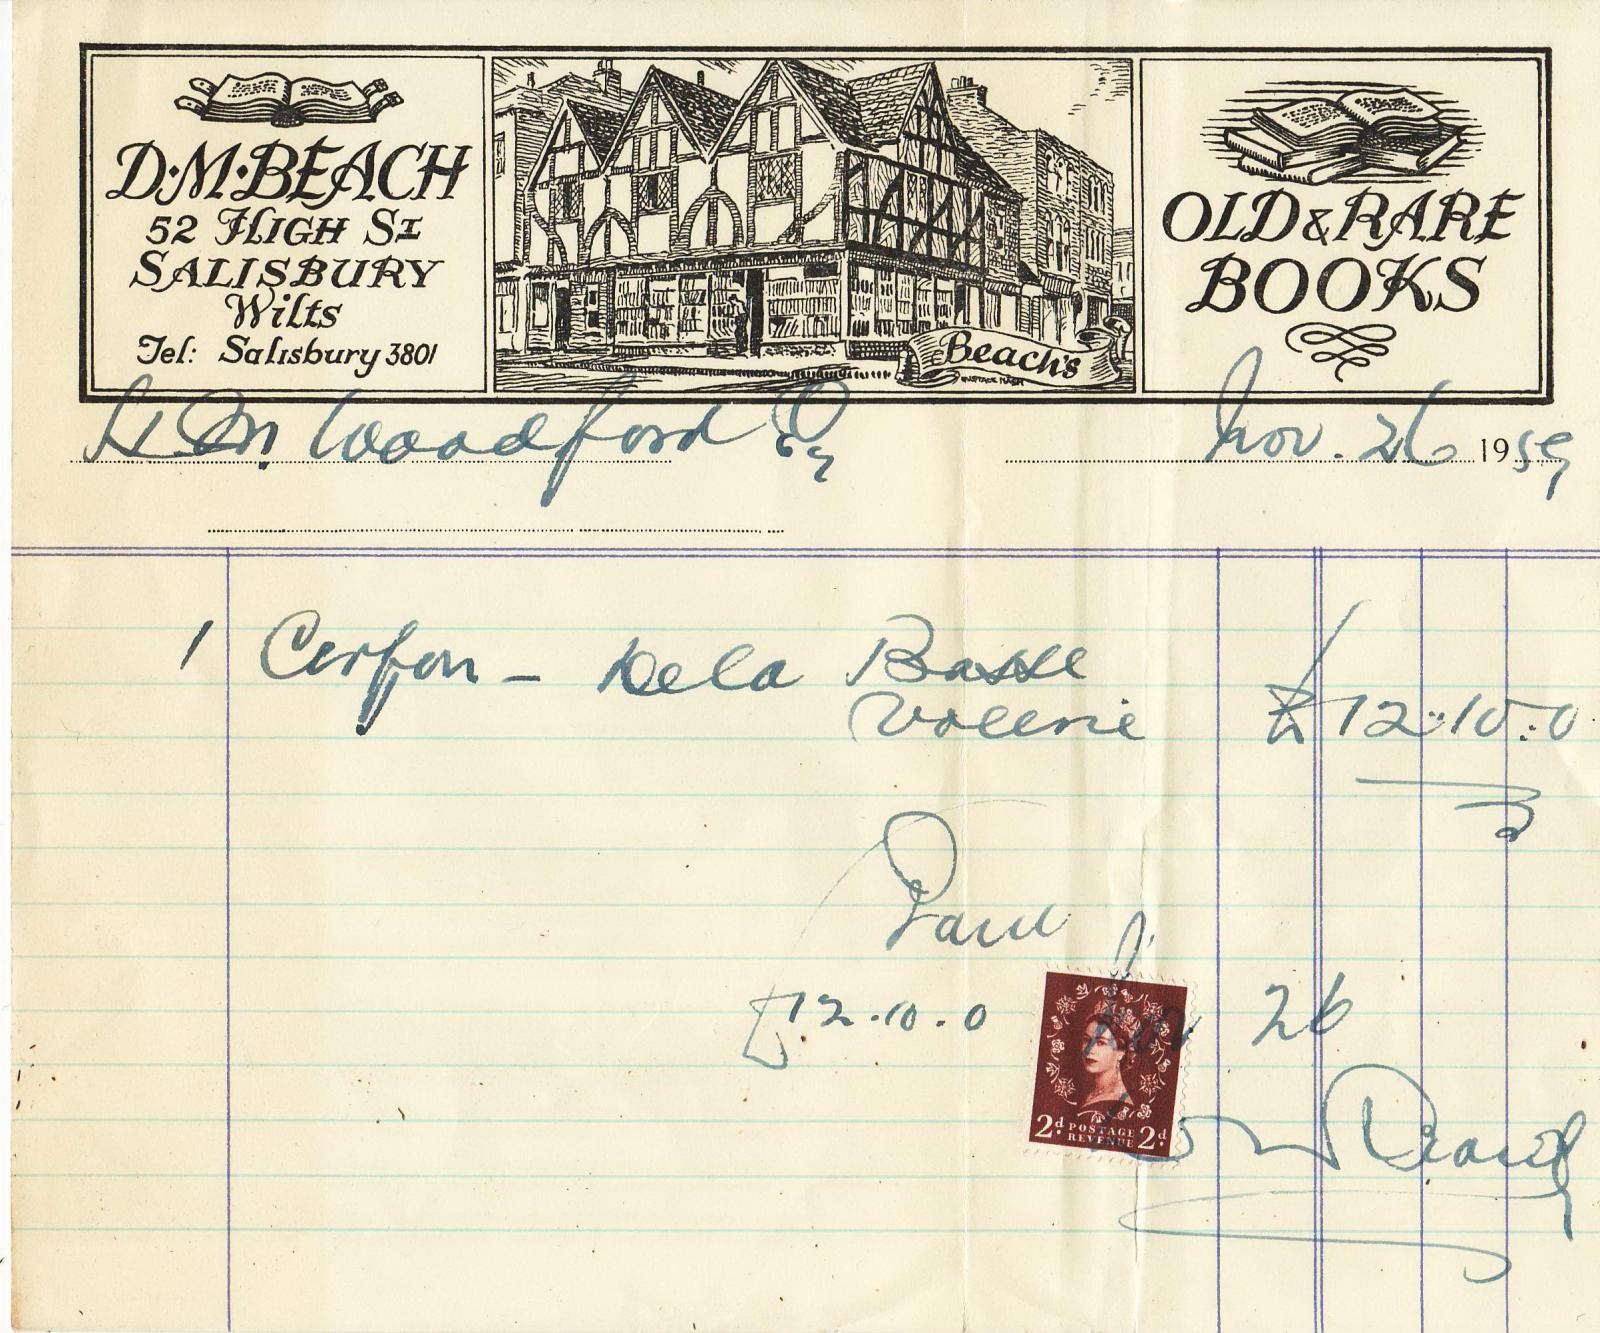 D·M·BEACH
52 HIGH ST
SALISBURY
Wilts
Tel: Salisbury 3801
Beach's
OLD & RARE
BOOKS
Woodford Esq
Nov. 26 1959
1 Cerfon - De la Basse
£12.10.0
Paid
£12.10.0 Nov 26
2d POSTAGE REVENUE 2d
D M Beach